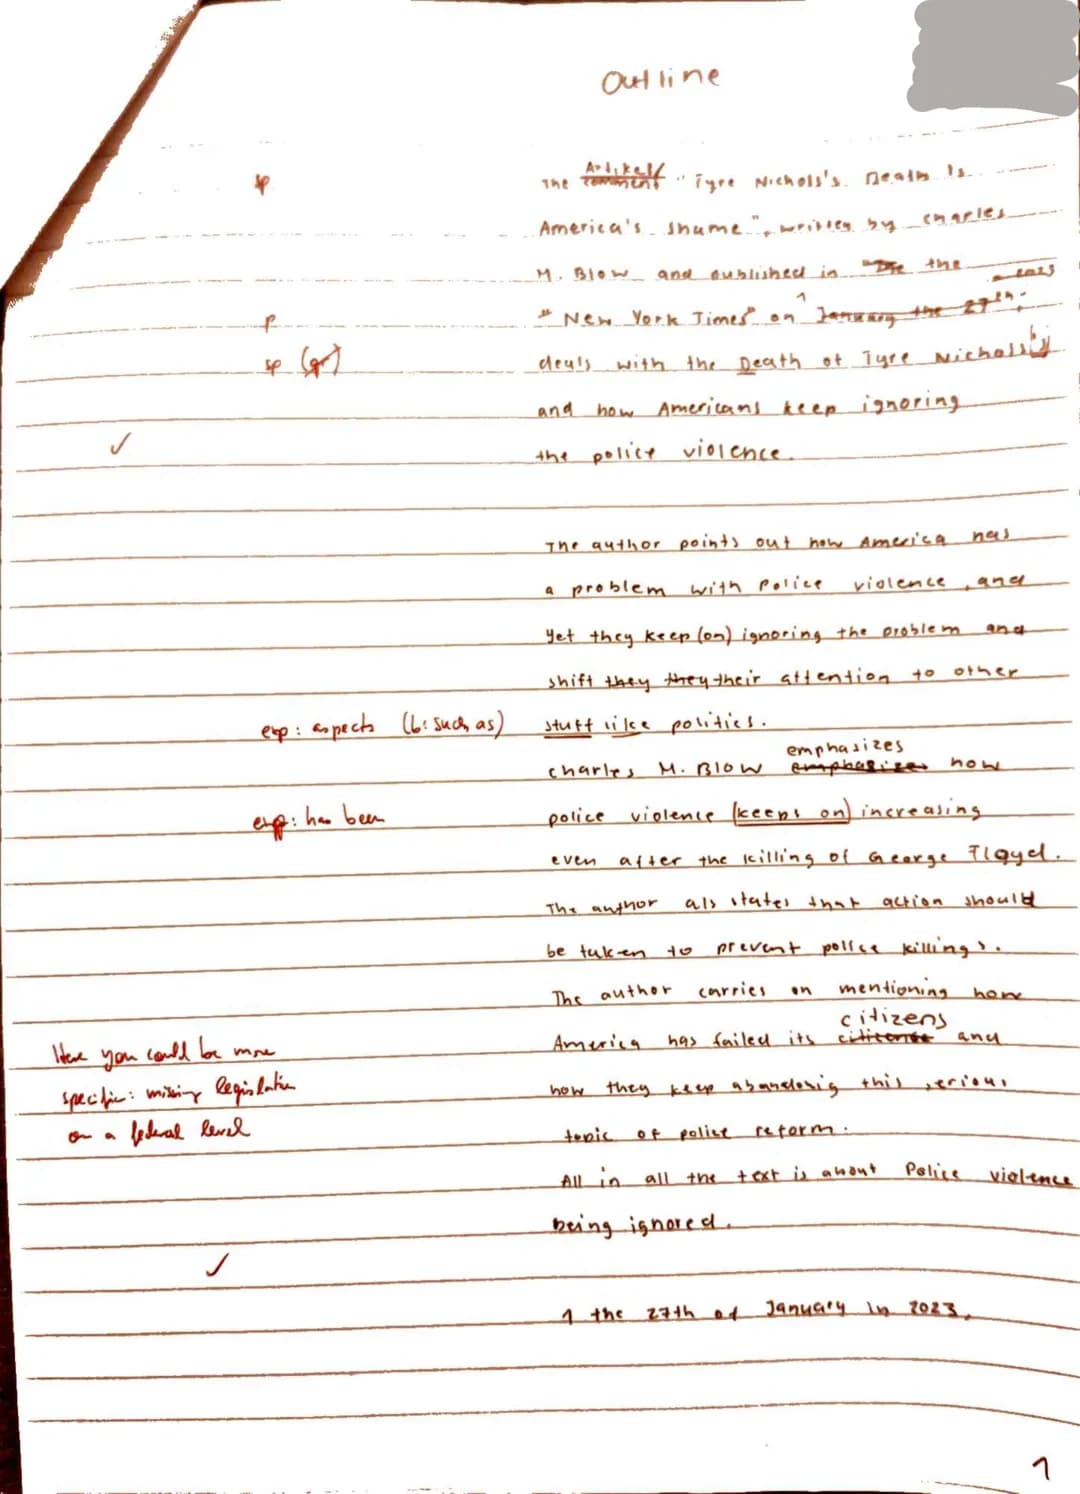 Outline
sp The Artikel/ comment "Tyre Nichols's Death Is
America's shame", written by charles
M. Blow and published in the the
p " New York Times" on 1 January the 27th.
sp (gr) deals with the Death of Tyre Nichols's
and how Americans keep ignoring
✓ the police violence.
The author points out how America has
a problem with Police violence, and
Yet they keep (on) ignoring the problem and
shift they they their attention to other
exp: aspects (b: such as) stuff like politics.
emphasizes
charles M. Blow emphasizes how
exp: has been police violence (keeps on) increasing
even after the killing of George Floyd.
The author als states that action should
be taken to prevent police killings.
The author carries on mentioning how
citizens
Here you could be more America has failed its and
specific: missing legislation how they keep abandonig this serious
on a federal level topic of police reform.
All in all the text is about Police violence
being ignored.
✓
1 the 27th of January in 2023.
1